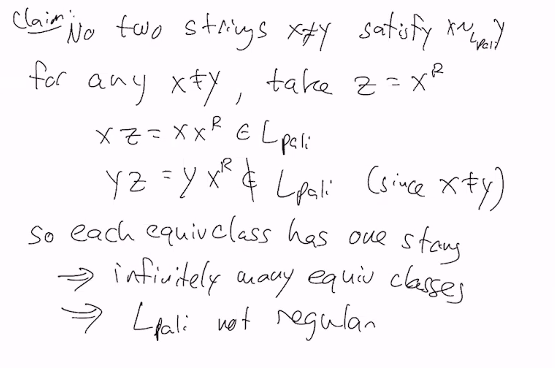 Claim: No two strings x≠y satisfy x~L_pali y
for any x≠y, take z = x^R
xz = xx^R ∈ L_pali
yz = yx^R ∉ L_pali (since x≠y)
so each equivclass has one string
⇒ infinitely many equiv classes
⇒ L_pali not regular